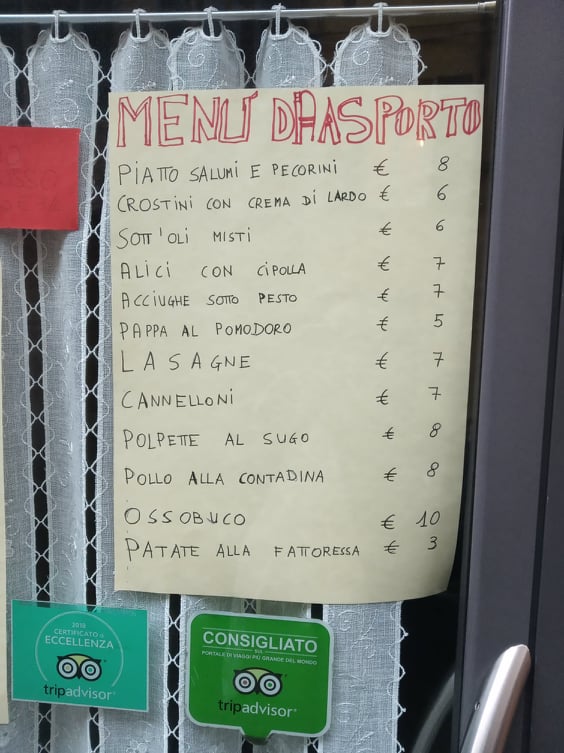 MENÚ D'ASPORTO
PIATTO SALUMI E PECORINI € 8
CROSTINI CON CREMA DI LARDO € 6
SOTT'OLI MISTI € 6
ALICI CON CIPOLLA € 7
ACCIUGHE SOTTO PESTO € 7
PAPPA AL POMODORO € 5
LASAGNE € 7
CANNELLONI € 7
POLPETTE AL SUGO € 8
POLLO ALLA CONTADINA € 8
OSSOBUCO € 10
PATATE ALLA FATTORESSA € 3
2018
CERTIFICATO di
ECCELLENZA
tripadvisor
CONSIGLIATO
SUL
PORTALE DI VIAGGI PIÙ GRANDE DEL MONDO
tripadvisor